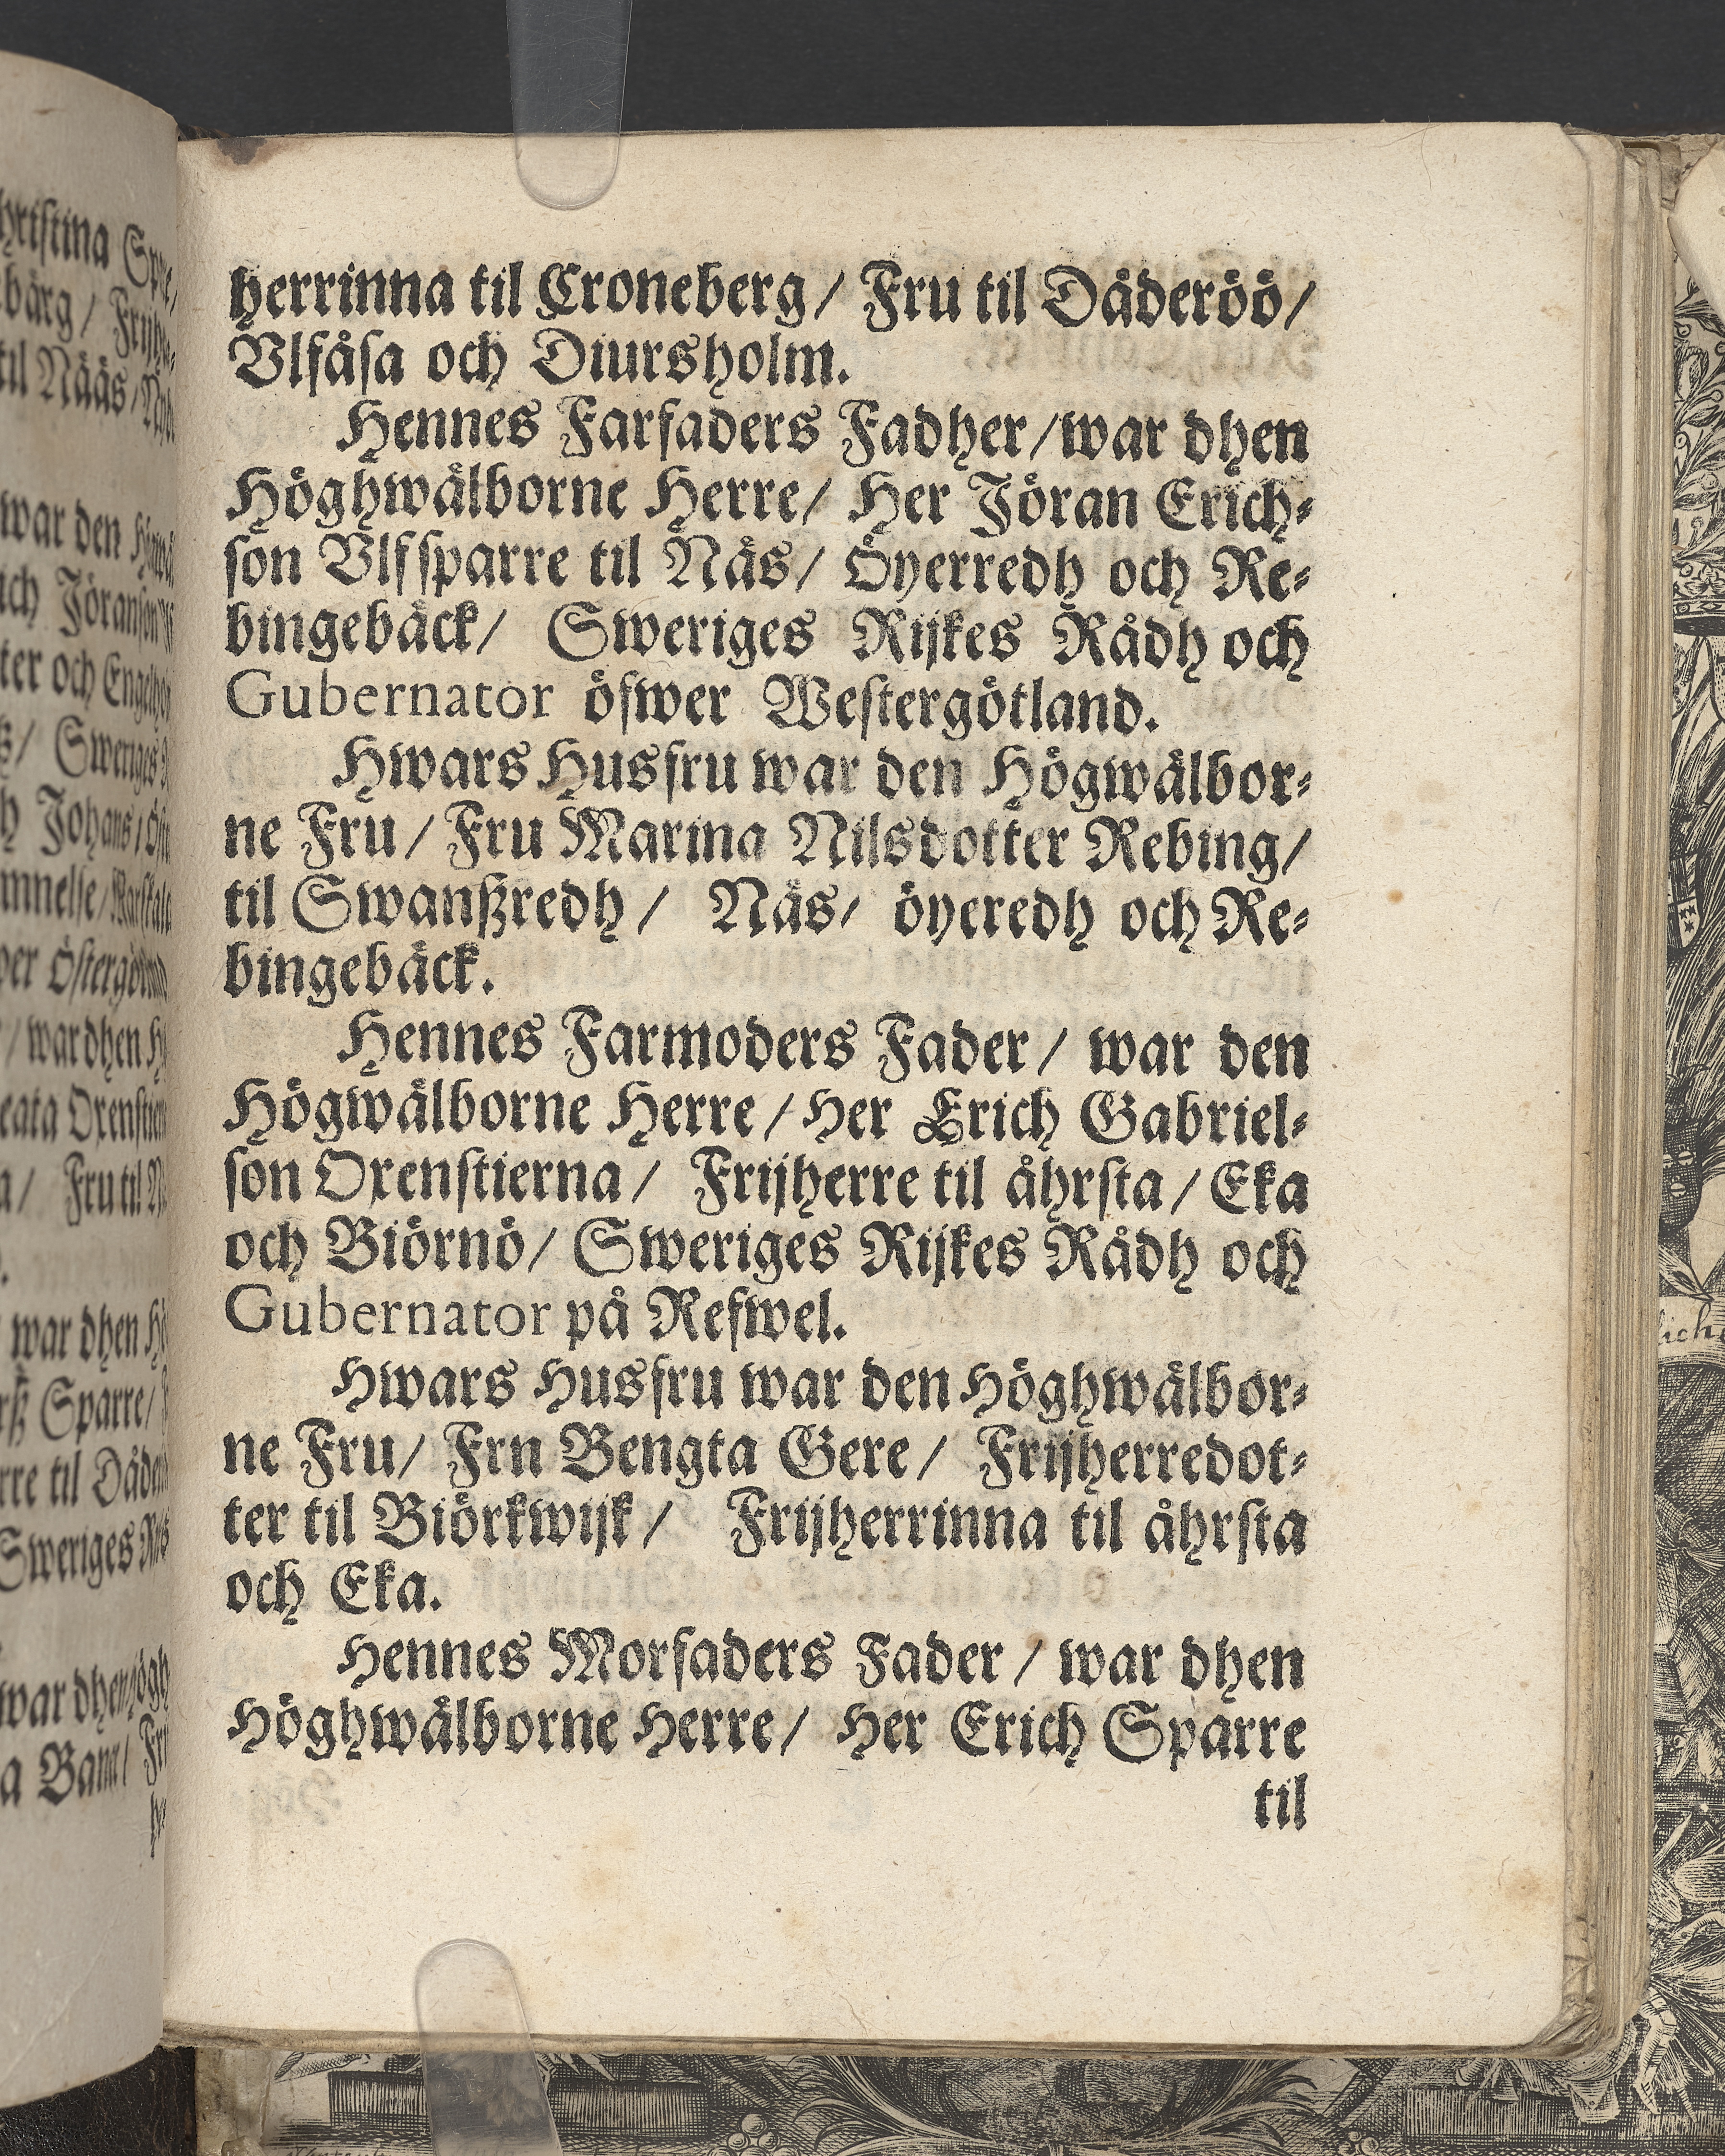 herrinna til Croneberg / Fru til Dåderöö /
Vlfåsa och Diursholm.
Hennes Farfaders Fadher / war dhen
Höghwälborne Herre / Her Jöran Erich⸗
son Vlfsparre til Näs / Öyerredh och Re⸗
bingebäck / Sweriges Rijkes Rådh och
Gubernator öfwer Westergötland.
Hwars Husfru war den Högwälbor⸗
ne Fru / Fru Marina Nilsdotter Rebing /
til Swanßredh / Näs / öyeredh och Re⸗
bingebäck.
Hennes Farmoders Fader / war den
Högwälborne Herre / Her Erich Gabriel⸗
son Oxenstierna / Frijherre til åhrsta / Eka
och Biörnö / Sweriges Rijkes Rådh och
Gubernator på Refwel.
Hwars Husfru war den Höghwälbor⸗
ne Fru / Frn Bengta Gere / Frijherredot⸗
ter til Biörkwijk / Frijherrinna til åhrsta
och Eka.
Hennes Morfaders Fader / war dhen
Höghwälborne Herre / Her Erich Sparre
til